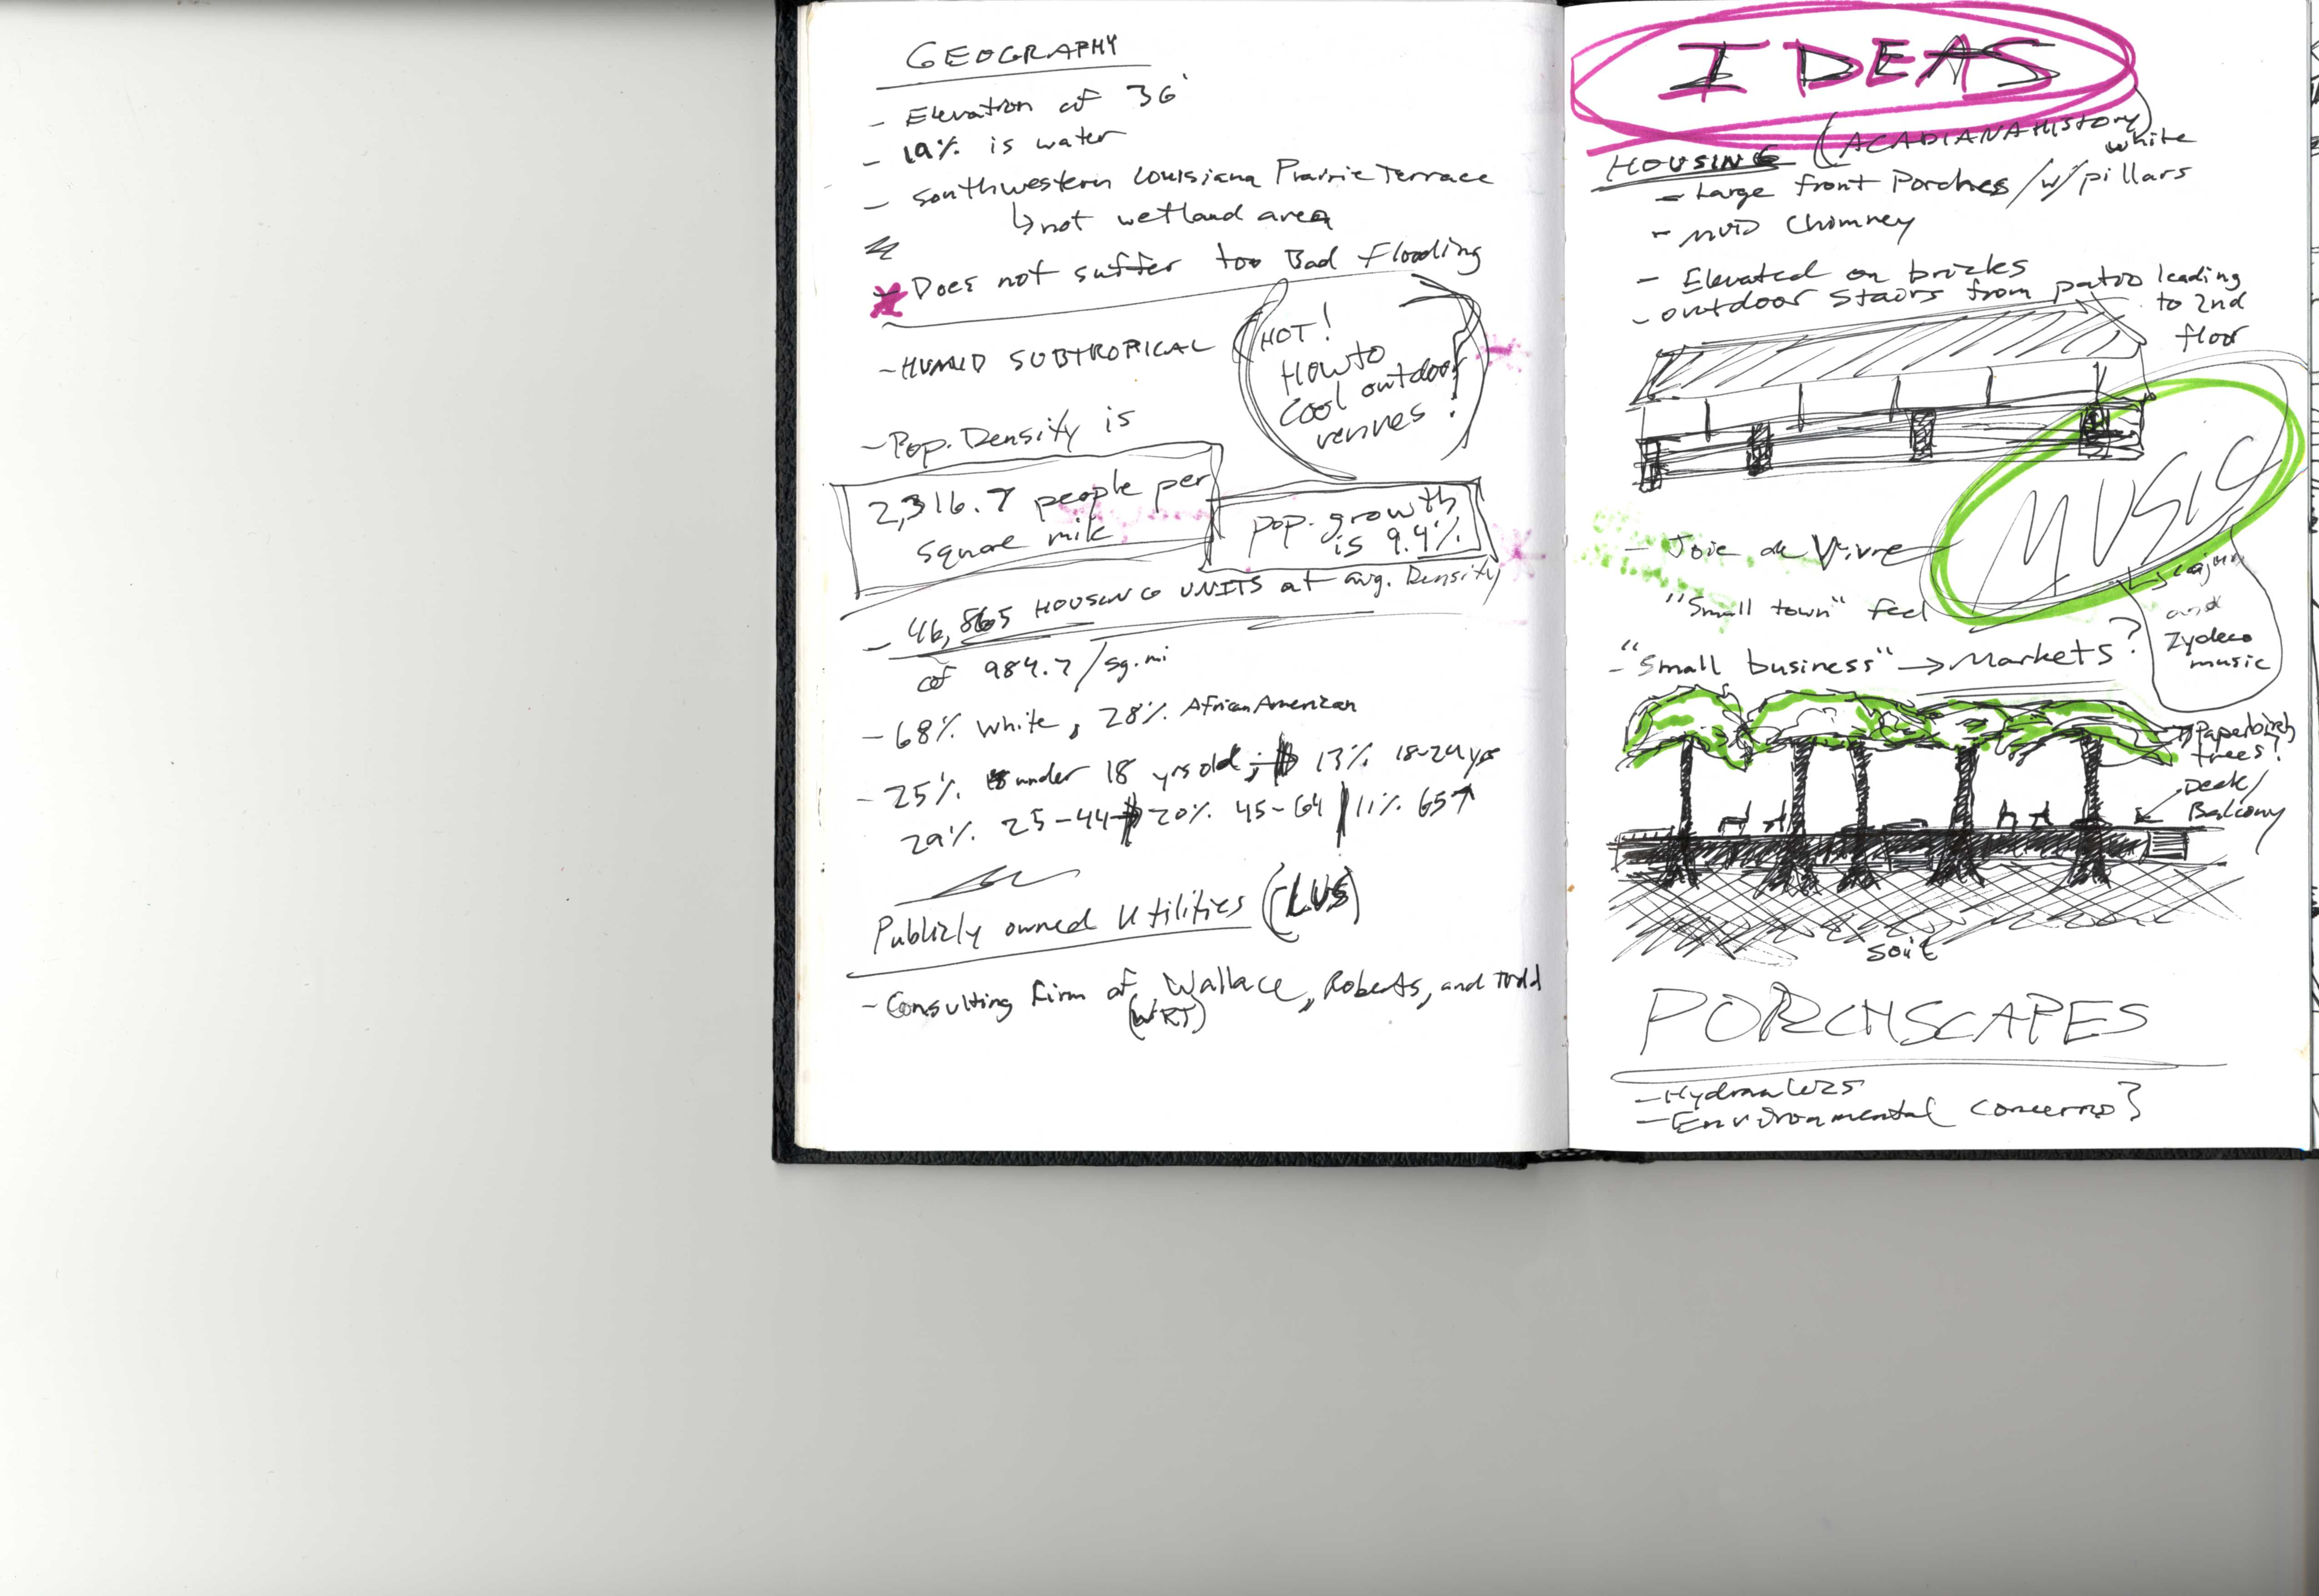 GEOGRAPHY
- Elevation of 36'
- 19% is water
- Southwestern Louisiana Prairie Terrace
↳ not wetland area
- Does not suffer too Bad Flooding
- HUMID SUBTROPICAL
HOT!
How to
cool outdoor
venues!
- Pop. Density is
2,316.7 people per
square mile
pop. growth
is 9.4%
- 46,865 HOUSING UNITS at avg. Density
of 984.7/sq.mi
- 68% white, 28% African American
- 25% under 18 yrs old, 13% 18-24 yrs
29% 25-44 20% 45-64 | 11% 65↑
Publicly owned Utilities (LUS)
- Consulting Firm of Wallace, Roberts, and Todd
(WRT)
IDEAS
HOUSING (ACADIANA HISTORY)
white
- Large front Porches /w/ pillars
- MUD Chimney
- Elevated on bricks
- outdoor stairs from patio leading
to 2nd
floor
MUSIC
- Joie de Vivre
↳ cajun
and
Zydeco
music
"Small town" feel
- "Small business" → Markets?
Paperbirch
trees?
Deck/
Balcony
soil
PORCHSCAPES
- Hydraulics
- Environmental concerns?